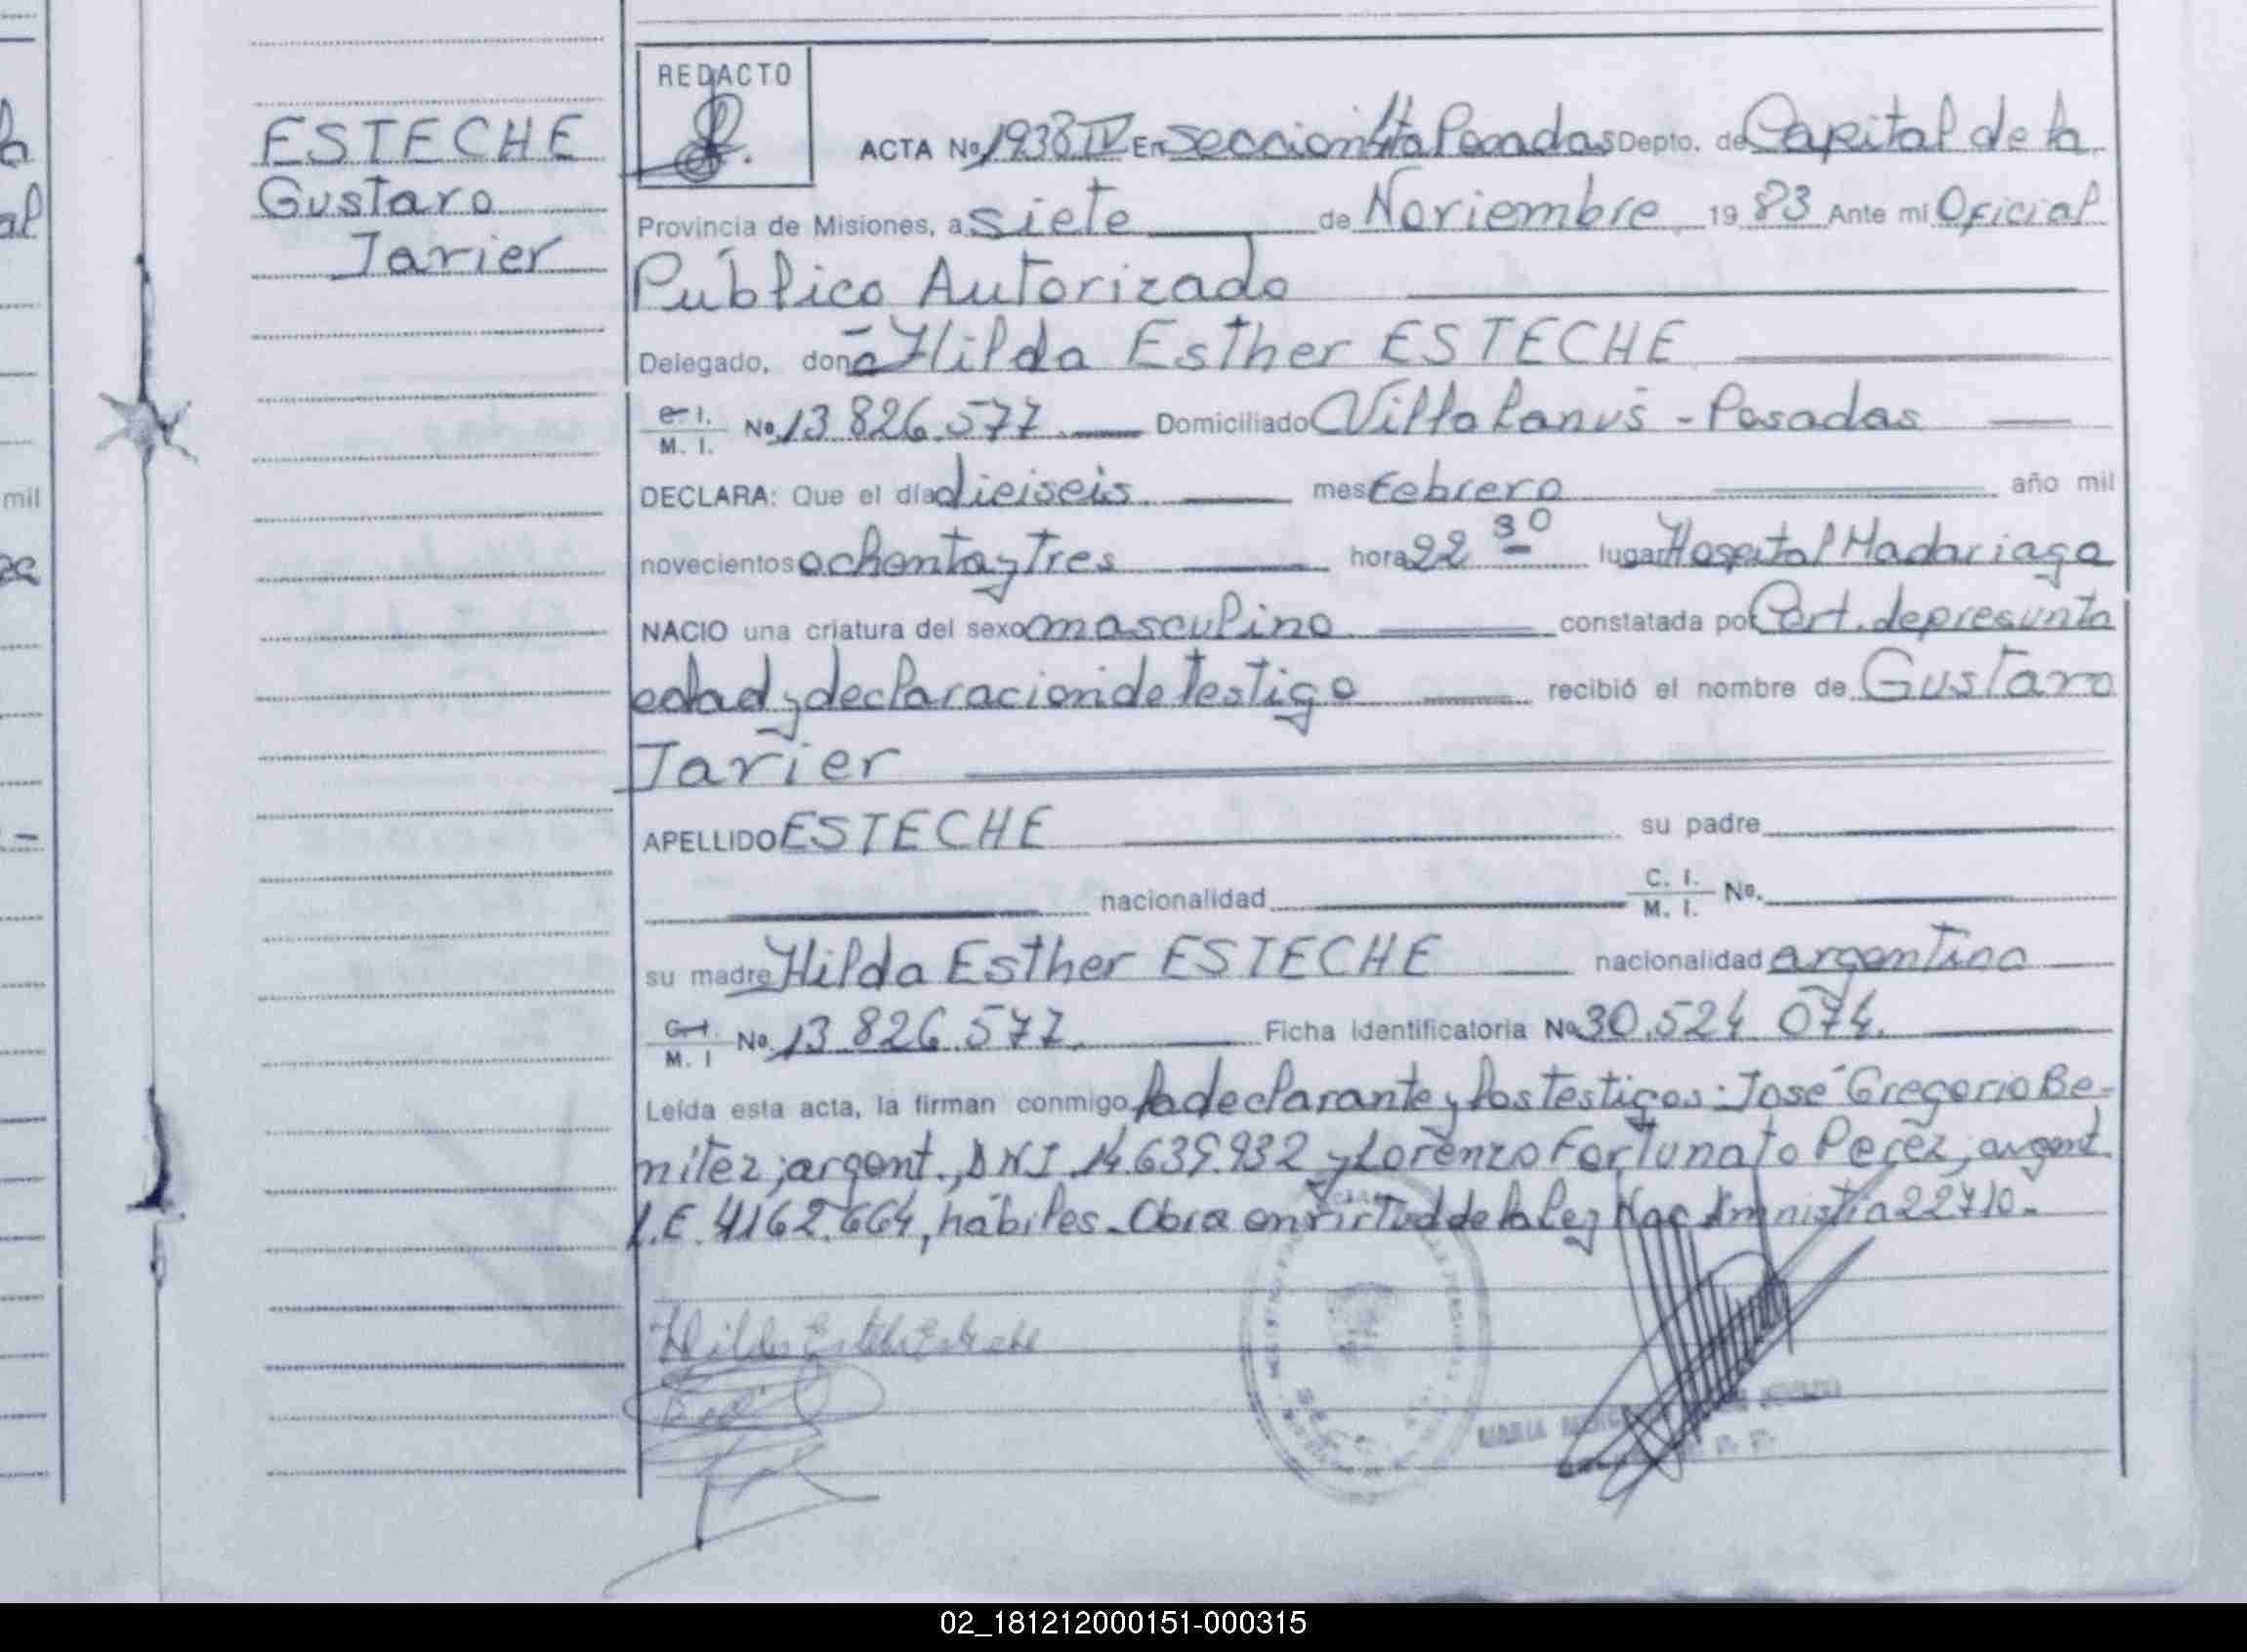 ESTECHE
Gustavo
Javier
REDACTO
ACTA Nº 1938 IV En Sección 4ta Posadas Depto. de Capital de la
Provincia de Misiones, a siete de Noviembre 1983 Ante mi Oficial
Público Autorizado
Delegado, doña Hilda Esther ESTECHE
C. I.
M. I. Nº 13.826.577 Domiciliado Villa Lanús - Posadas
DECLARA: Que el día dieiseis mes Febrero año mil
novecientos ochenta y Tres hora 22 30 lugar Hospital Madariaga
NACIO una criatura del sexo masculino constatada por Cert. de presunta
edad y declaracion de Testigo recibió el nombre de Gustavo
Javier
APELLIDO ESTECHE su padre
nacionalidad C. I.
M. I. Nº.
su madre Hilda Esther ESTECHE nacionalidad argentina
C. I.
M. I Nº. 13.826.577. Ficha identificatoria Nº 30.524 074.
Leída esta acta, la firman conmigo la declarante y los testigos: José Gregorio Be-
nitez, argent., DNI 14.639.932 y Lorenzo Fortunato Perez, argent.
L.E. 4162.664, hábiles. Obra en virtud de la Ley Nac Amnistia 22710.
Hilda Esther Esteche
MARIA
mil
02_181212000151-000315